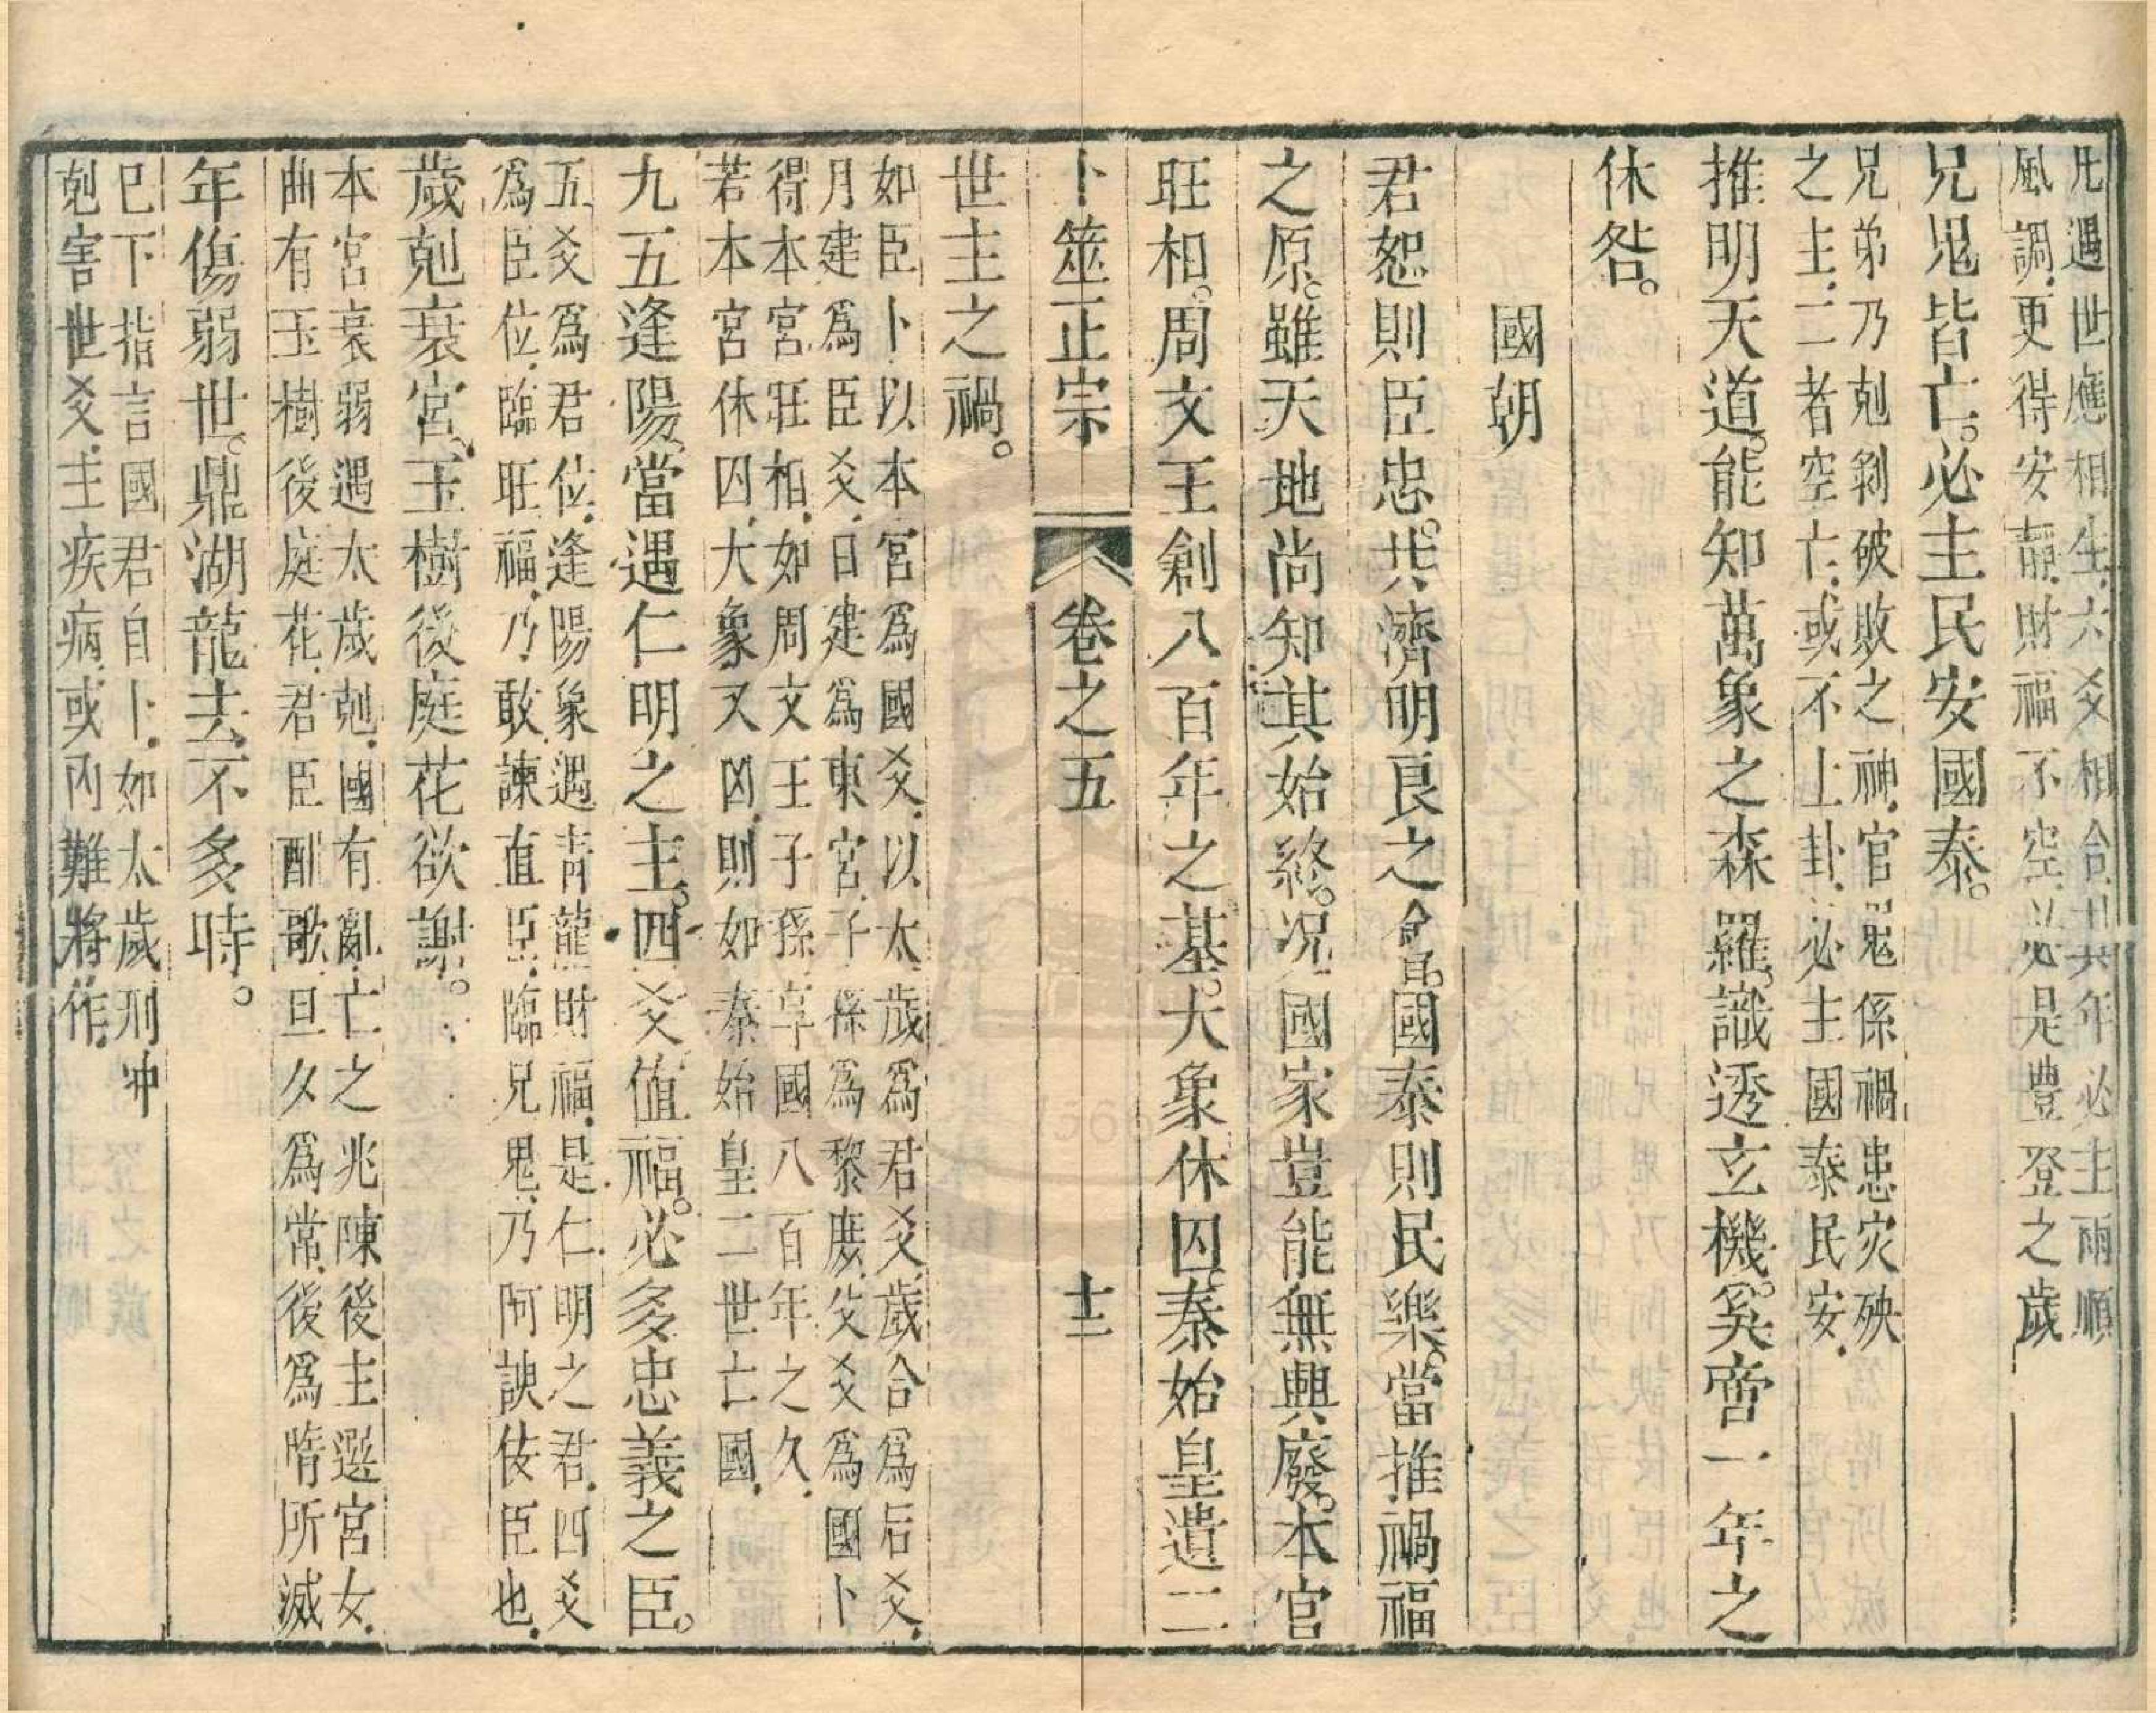 凡遇世應相生六爻相合其年必主雨順
風調更得安靜財福不空必是豐登之歲
兄鬼皆亡必主民安國泰
兄弟乃剋剝破敗之神官鬼係禍患灾殃
之主二者空亡或不上卦必主國泰民安
推明天道能知萬象之森羅識透玄機奚啻一年之
休咎
國朝
君恕則臣忠共濟明良之會國泰則民樂當推禍福
之原雖天地尚知其始終况國家豈能無興廢本宫
旺相周文王創八百年之基大象休囚秦始皇遺二
卜筮正宗 卷之五 十二
世主之禍
如臣卜以本宮爲國爻以太歲爲君爻歲合爲后爻
月建爲臣爻日建爲東宮子孫爲黎庶父爻爲國卜
得本宮旺相如周文王子孫享國八百年之久
若本宮休囚大象又凶則如秦始皇二世亡國
九五逢陽當遇仁明之主四爻值福必多忠義之臣
五爻爲君位逢陽象遇靑龍財福是仁明之君四爻
爲臣位臨旺福乃敢諫直臣臨兄鬼乃阿諛伎臣也
歲剋衰宮玉樹後庭花欲謝
本宮衰弱遇太歲剋國有亂亡之兆陳後主選宮女
曲有玉樹後庭花君臣酣歌旦夕爲常後爲隋所滅
年傷弱世鼎湖龍去不多時
巳下指言國君自卜如太歲刑冲
剋害世爻主疾病或內難將作